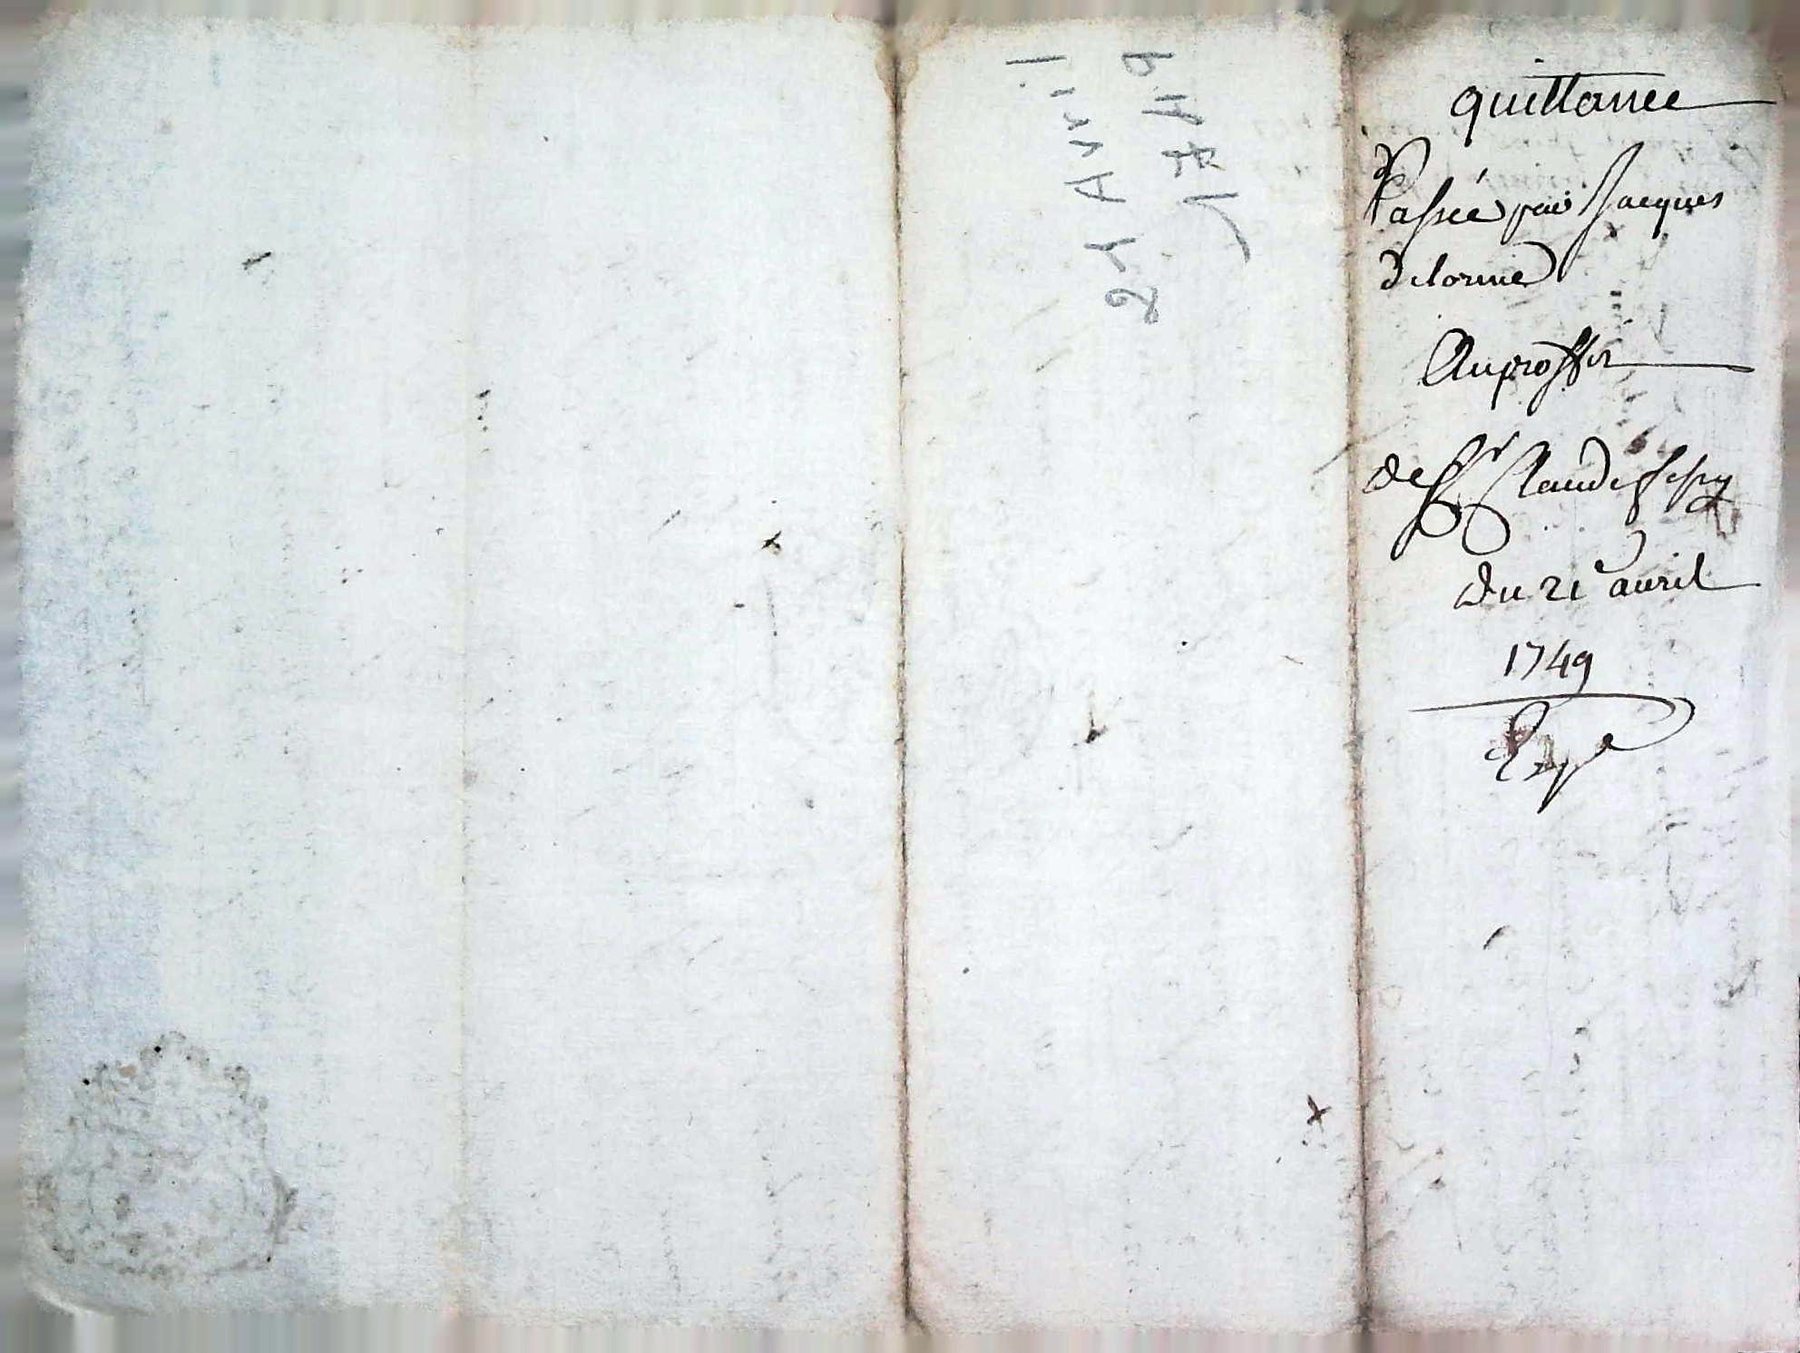 quittance
Passée par Jacques
delorme
Au proffit
de Sr Claude
du 21e avril
1749
Expé
21 Avril
1749